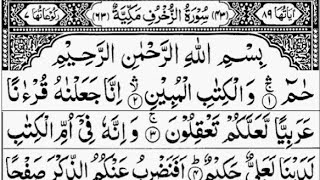 اٰیَاتُهَا ٨٩ (٤٣) سُوْرَةُ الزُّخْرُفِ مَكِّیَّةٌ (٦٣) رُكُوْعَاتُهَا ٧
بِسْمِ اللّٰهِ الرَّحْمٰنِ الرَّحِیْمِ
حٰمٓ ۚ﴿١﴾ وَ الْكِتٰبِ الْمُبِیْنِ ۙ﴿٢﴾ اِنَّا جَعَلْنٰهُ قُرْءٰنًا
عَرَبِیًّا لَّعَلَّكُمْ تَعْقِلُوْنَ ۚ﴿٣﴾ وَ اِنَّهٗ فِیْۤ اُمِّ الْكِتٰبِ
لَدَیْنَا لَعَلِیٌّ حَكِیْمٌ ؕ﴿٤﴾ اَفَنَضْرِبُ عَنْكُمُ الذِّكْرَ صَفْحًا